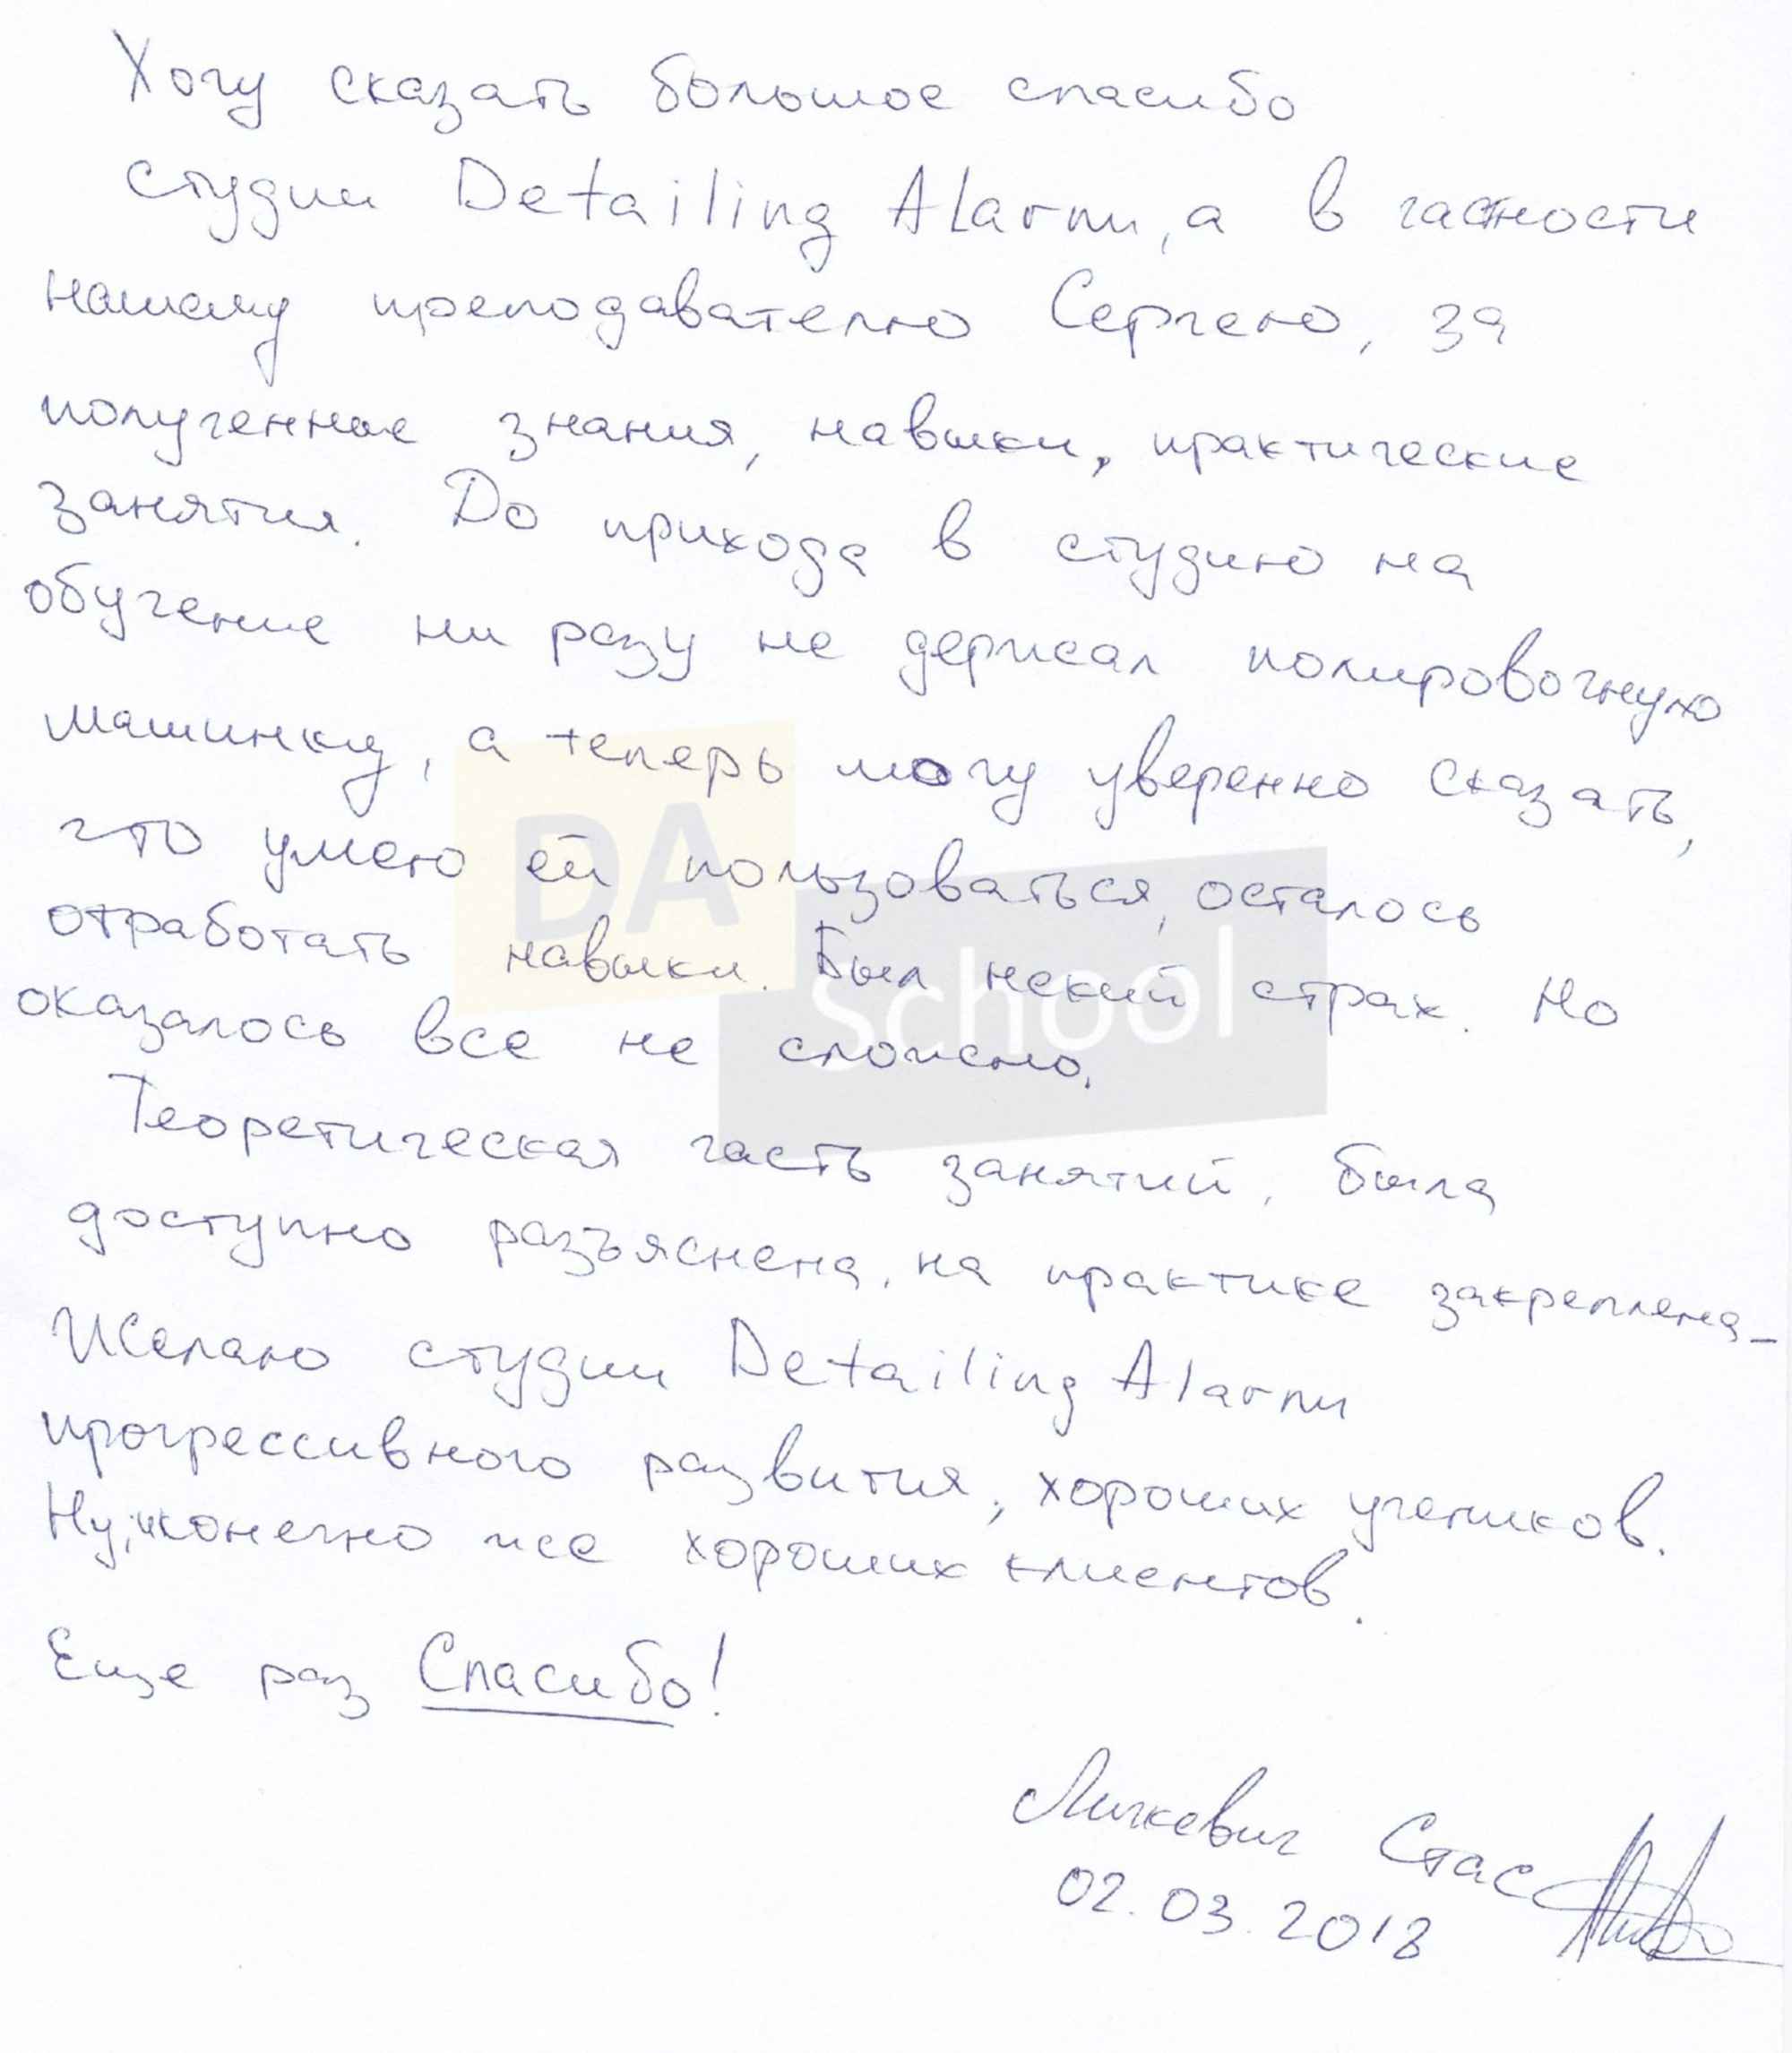 Хочу сказать большое спасибо
студии Detailing Alarm, а в частности
нашему преподавателю Сергею, за
полученные знания, навыки, практические
занятия. До прихода в студию на
обучение ни разу не держал полировочную
машинку, а теперь могу уверенно сказать,
что умею ей пользоваться, осталось
отработать навыки. Был некий страх. Но
оказалось все не сложно.
Теоретическая часть занятий, была
доступно разъяснена, на практике закреплена.
Желаю студии Detailing Alarm
прогрессивного развития, хороших учеников.
Ну, и конечно же хороших клиентов.
Еще раз Спасибо!
Личкевич Стас
02.03.2018
DA
School